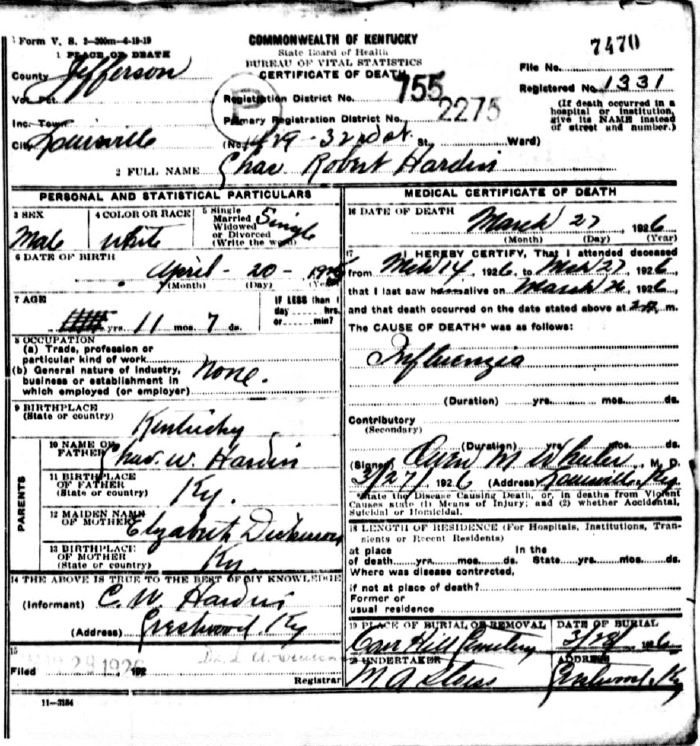 Form V. S. 2-200m-6-19-19
COMMONWEALTH OF KENTUCKY
State Board of Health
BUREAU OF VITAL STATISTICS
CERTIFICATE OF DEATH
7470
File No.
1 PLACE OF DEATH
County Jefferson
Registered No. 1331
Vot. Pct.
Registration District No. 755
(If death occurred in a hospital or institution, give its NAME instead of street and number.)
Inc. Town
Primary Registration District No. 2275
City Louisville
(No. 1429-32nd St. St., Ward)
2 FULL NAME Chas Robert Hardin
PERSONAL AND STATISTICAL PARTICULARS
3 SEX
Male
4 COLOR OR RACE
White
5 Single
Married
Widowed
or Divorced
(Write the word)
Single
6 DATE OF BIRTH
April - 20 -
(Month) (Day) (Year)
7 AGE
yrs. 11 mos. 7 ds.
If LESS than 1
day hrs.
or min?
8 OCCUPATION
(a) Trade, profession or
particular kind of work
(b) General nature of Industry,
business or establishment in
which employed (or employer)
None.
9 BIRTHPLACE
(State or country)
Kentucky
PARENTS
10 NAME OF
FATHER
Chas. W. Hardin
11 BIRTHPLACE
OF FATHER
(State or country)
Ky.
12 MAIDEN NAME
OF MOTHER
Elizabeth Dickerson
13 BIRTHPLACE
OF MOTHER
(State or country)
Ky.
14 THE ABOVE IS TRUE TO THE BEST OF MY KNOWLEDGE
(Informant) C. W. Hardin
(Address) Crestwood, Ky
15
Filed 192
Registrar
11-3184
MEDICAL CERTIFICATE OF DEATH
16 DATE OF DEATH
March 27 1926
(Month) (Day) (Year)
17 I HEREBY CERTIFY, That I attended deceased
from Mch 14, 1926, to Mch 27, 1926,
that I last saw alive on March 26, 1926,
and that death occurred on the date stated above at m.
The CAUSE OF DEATH* was as follows:
Influenzia
(Duration) yrs. mos. ds.
Contributory
(Secondary)
(Duration) yrs. mos. ds.
(Signed) M Wheeler, M. D.
3/27/1926 (Address) Louisville, Ky.
*State the Disease Causing Death, or, in deaths from Violent
Causes state (1) Means of Injury; and (2) whether Accidental,
Suicidal or Homicidal.
18 LENGTH OF RESIDENCE (For Hospitals, Institutions, Tran-
sients or Recent Residents)
at place In the
of death yrs. mos. ds. State yrs. mos. ds.
Where was disease contracted,
if not at place of death?
Former or
usual residence
19 PLACE OF BURIAL OR REMOVAL
Cemetery
DATE OF BURIAL
3/28/ 1926
20 UNDERTAKER
M A Stoess
ADDRESS
Crestwood, Ky